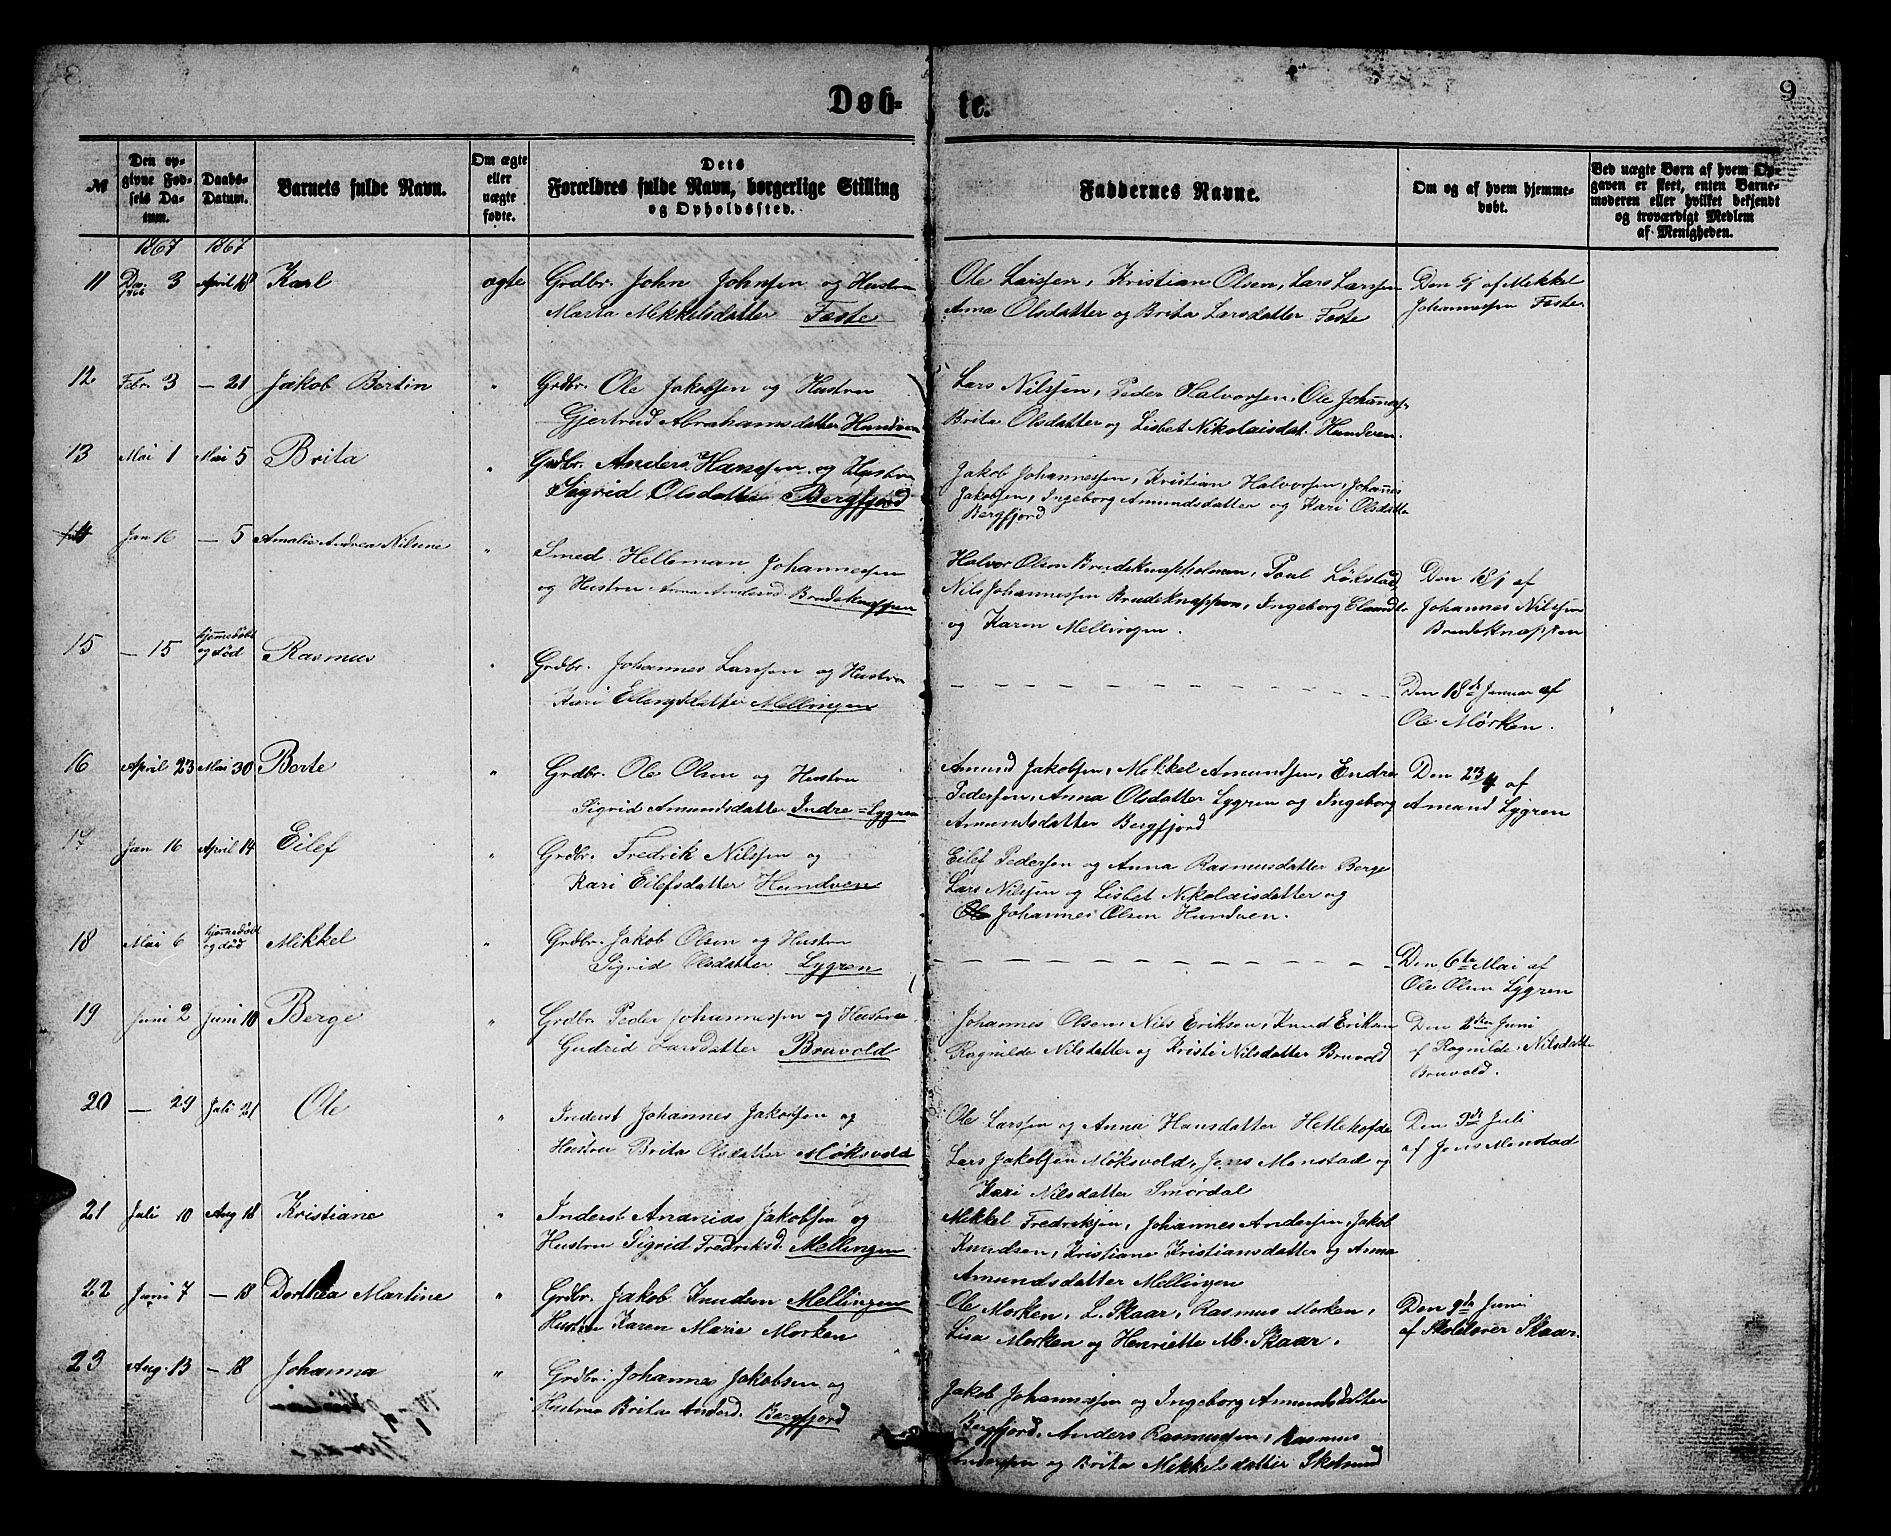 9
Døb- te.
№
Den op-
givne Fød-
sels Da-
tum.
Daabs-
Datum.
Barnets fulde Navn.
Om ægte
eller
uægte
fødte.
Dets
Forældres fulde Navn, borgerlige Stilling
og Opholdssted.
Faddernes Navne.
Om og af hvem hjemme-
døbt.
Ved uægte Børn af hvem Op-
gaven er skeet, enten Barne-
moderen eller hvilket bekjendt
og troværdigt Medlem
af Menigheden.
1867 1867
11 Dec. 1866 3 April 18 Karl ægte Grdbr. John Johnsen og Hustru
Marta Mikkelsdatter Fæste
Ole Larssen, Kristian Olsen, Lars Larssen
Anna Olsdatter og Brita Larsdatter Foste
Den 6/1 af Mikkel
Johannessen Foste
12 Febr. 3 — 21 Jakob Bertin " Grdbr. Ole Jakobsen og Hustru
Gjertrud Abrahamsdatter Hundven
Lars Nilssen, Peder Halvorsen, Ole Johannes.
Brita Olsdatter og Lisbet Nikolaisdat. Hundven.
13 Mai 1 Mai 5 Brita " Grdbr. Anders Hanssen og Hustru
Sigrid Olsdatter Bergfjord
Jakob Johannessen, Kristian Halvorsen, Johannes
Jakobsen, Ingeborg Amundsdatter og Kari Olsdatte
Bergfjord
14 Jan 16 — 5 Amalie Andrea Nilsine " Smed Helleman Johannessen
og Hustru Anna Andersd. Brudeknappen
Halvor Olsen Brudeknapholmen, Poul Løkstad,
Nils Johannessen Brudeknappen, Ingeborg Elamdt.
og Karen Mellingen.
Den 18/1 af
Johannes Nilssen
Brudeknappen
15 — 15 hjemmedøbt
og død Rasmus " Grdbr. Johannes Larssen og Hustru
Kari Ellingsdatter Mellingen
Den 18de Januar af
Ole Mørken.
16 April 23 Mai 30 Berte " Grdbr. Ole Olsen og Hustru
Sigrid Amundsdatter Indre=Lygren
Amund Jakobsen, Mikkel Amundsen, Endre
Pedersen, Anna Olsdatter Lygren og Ingeborg
Amundsdatter Bergfjord
Den 23/4 af
Amund Lygren
17 Jan 16 April 14 Eilef " Grdbr. Fredrik Nilssen og
Kari Eilefsdatter Hundven
Eilef Pedersen og Anna Rasmusdatter Berge
Lars Nilssen og Lisbet Nikolaisdatter og
Ole Johannes Olsen Hundven.
18 Mai 6 hjemmedøbt
og død Mikkel " Grdbr. Jakob Olsen og Hustru
Sigrid Olsdatter Lygren
Den 6te Mai af
Ole Olsen Lygren
19 Juni 2 Juni 10 Berge " Grdbr. Peder Johannessen og Hustru
Gudrid Larsdatter Bruvold
Johannes Olsen, Nils Eriksen, Knud Eriksen
Ragnilde Nilsdatter og Kristi Nilsdatter Bruvold
Den 2den Juni
af Ragnilde Nilsdatte
Bruvold.
20 — 29 Juli 21 Ole " Inderst Johannes Jakobsen og
Hustru Brita Olsdatter Møksvold
Ole Larssen og Anna Hansdatter Hetlehofde
Lars Jakobsen Møksvold, Jens Monstad og
Kari Nilsdatter Smørdal
Den 3de Juli
af Jens Monstad
21 Juli 10 Aug 18 Kristiane " Inderst Ananias Jakobsen og
Hustru Sigrid Fredriksd. Mellingen
Mikkel Fredriksen, Johannes Andersen, Jakob
Knudsen, Kristiane Kristiansdatter og Anna
Amundsdatter Mellingen
22 Juni 7 — 18 Dorthea Martine " Grdbr. Jakob Knudsen Mellingen
Hustru Karen Marie Morken
Ole Morken, L. Skaar, Rasmus Morken,
Lisa Morken og Henriette M. Skaar.
Den 9de Juni
af Skolelærer Skaar.
23 Aug. 13 — 18 Johanna " Grdbr. Johannes Jakobsen og
Hustru Brita Andersd. Bergfjord
Jakob Johannessen og Ingeborg Amundsdatter
Bergfjord, Anders Rasmussen, Rasmus
Anderssen og Brita Mikkelsdatter Skotsund